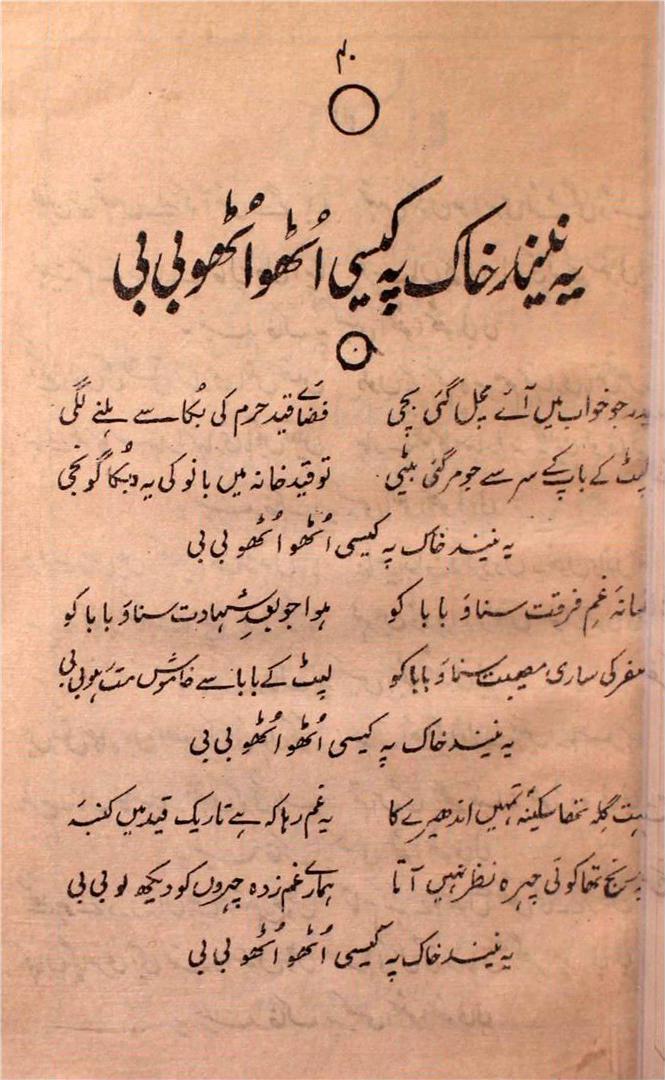 ۴۰
یہ نیند خاک پہ کیسی اُٹھو اُٹھو بی بی
پدر جو خواب میں آئے مچل گئی بچی فضائے قید حرم کی بُکا سے ہلنے لگی
لپٹ کے باپ کے سر سے جو مر گئی بیٹی تو قید خانہ میں بانو کی یہ بُکا گونجی
یہ نیند خاک پہ کیسی اُٹھو اُٹھو بی بی
غمِ فرقت سناؤ بابا کو ہوا جو بعدِ شہادت سناؤ بابا کو
سفر کی ساری مصیبت سناؤ بابا کو لپٹ کے بابا سے خاموش مت رہو بی بی
یہ نیند خاک پہ کیسی اُٹھو اُٹھو بی بی
بہت گلہ تھا سکینہؑ تمہیں اندھیرے کا یہ غم رہا کہ ہے تاریک قید میں کنبہ
یہ رنج تھا کوئی چہرہ نظر نہیں آتا ہمارے غم زدہ چہروں کو دیکھ لو بی بی
یہ نیند خاک پہ کیسی اُٹھو اُٹھو بی بی